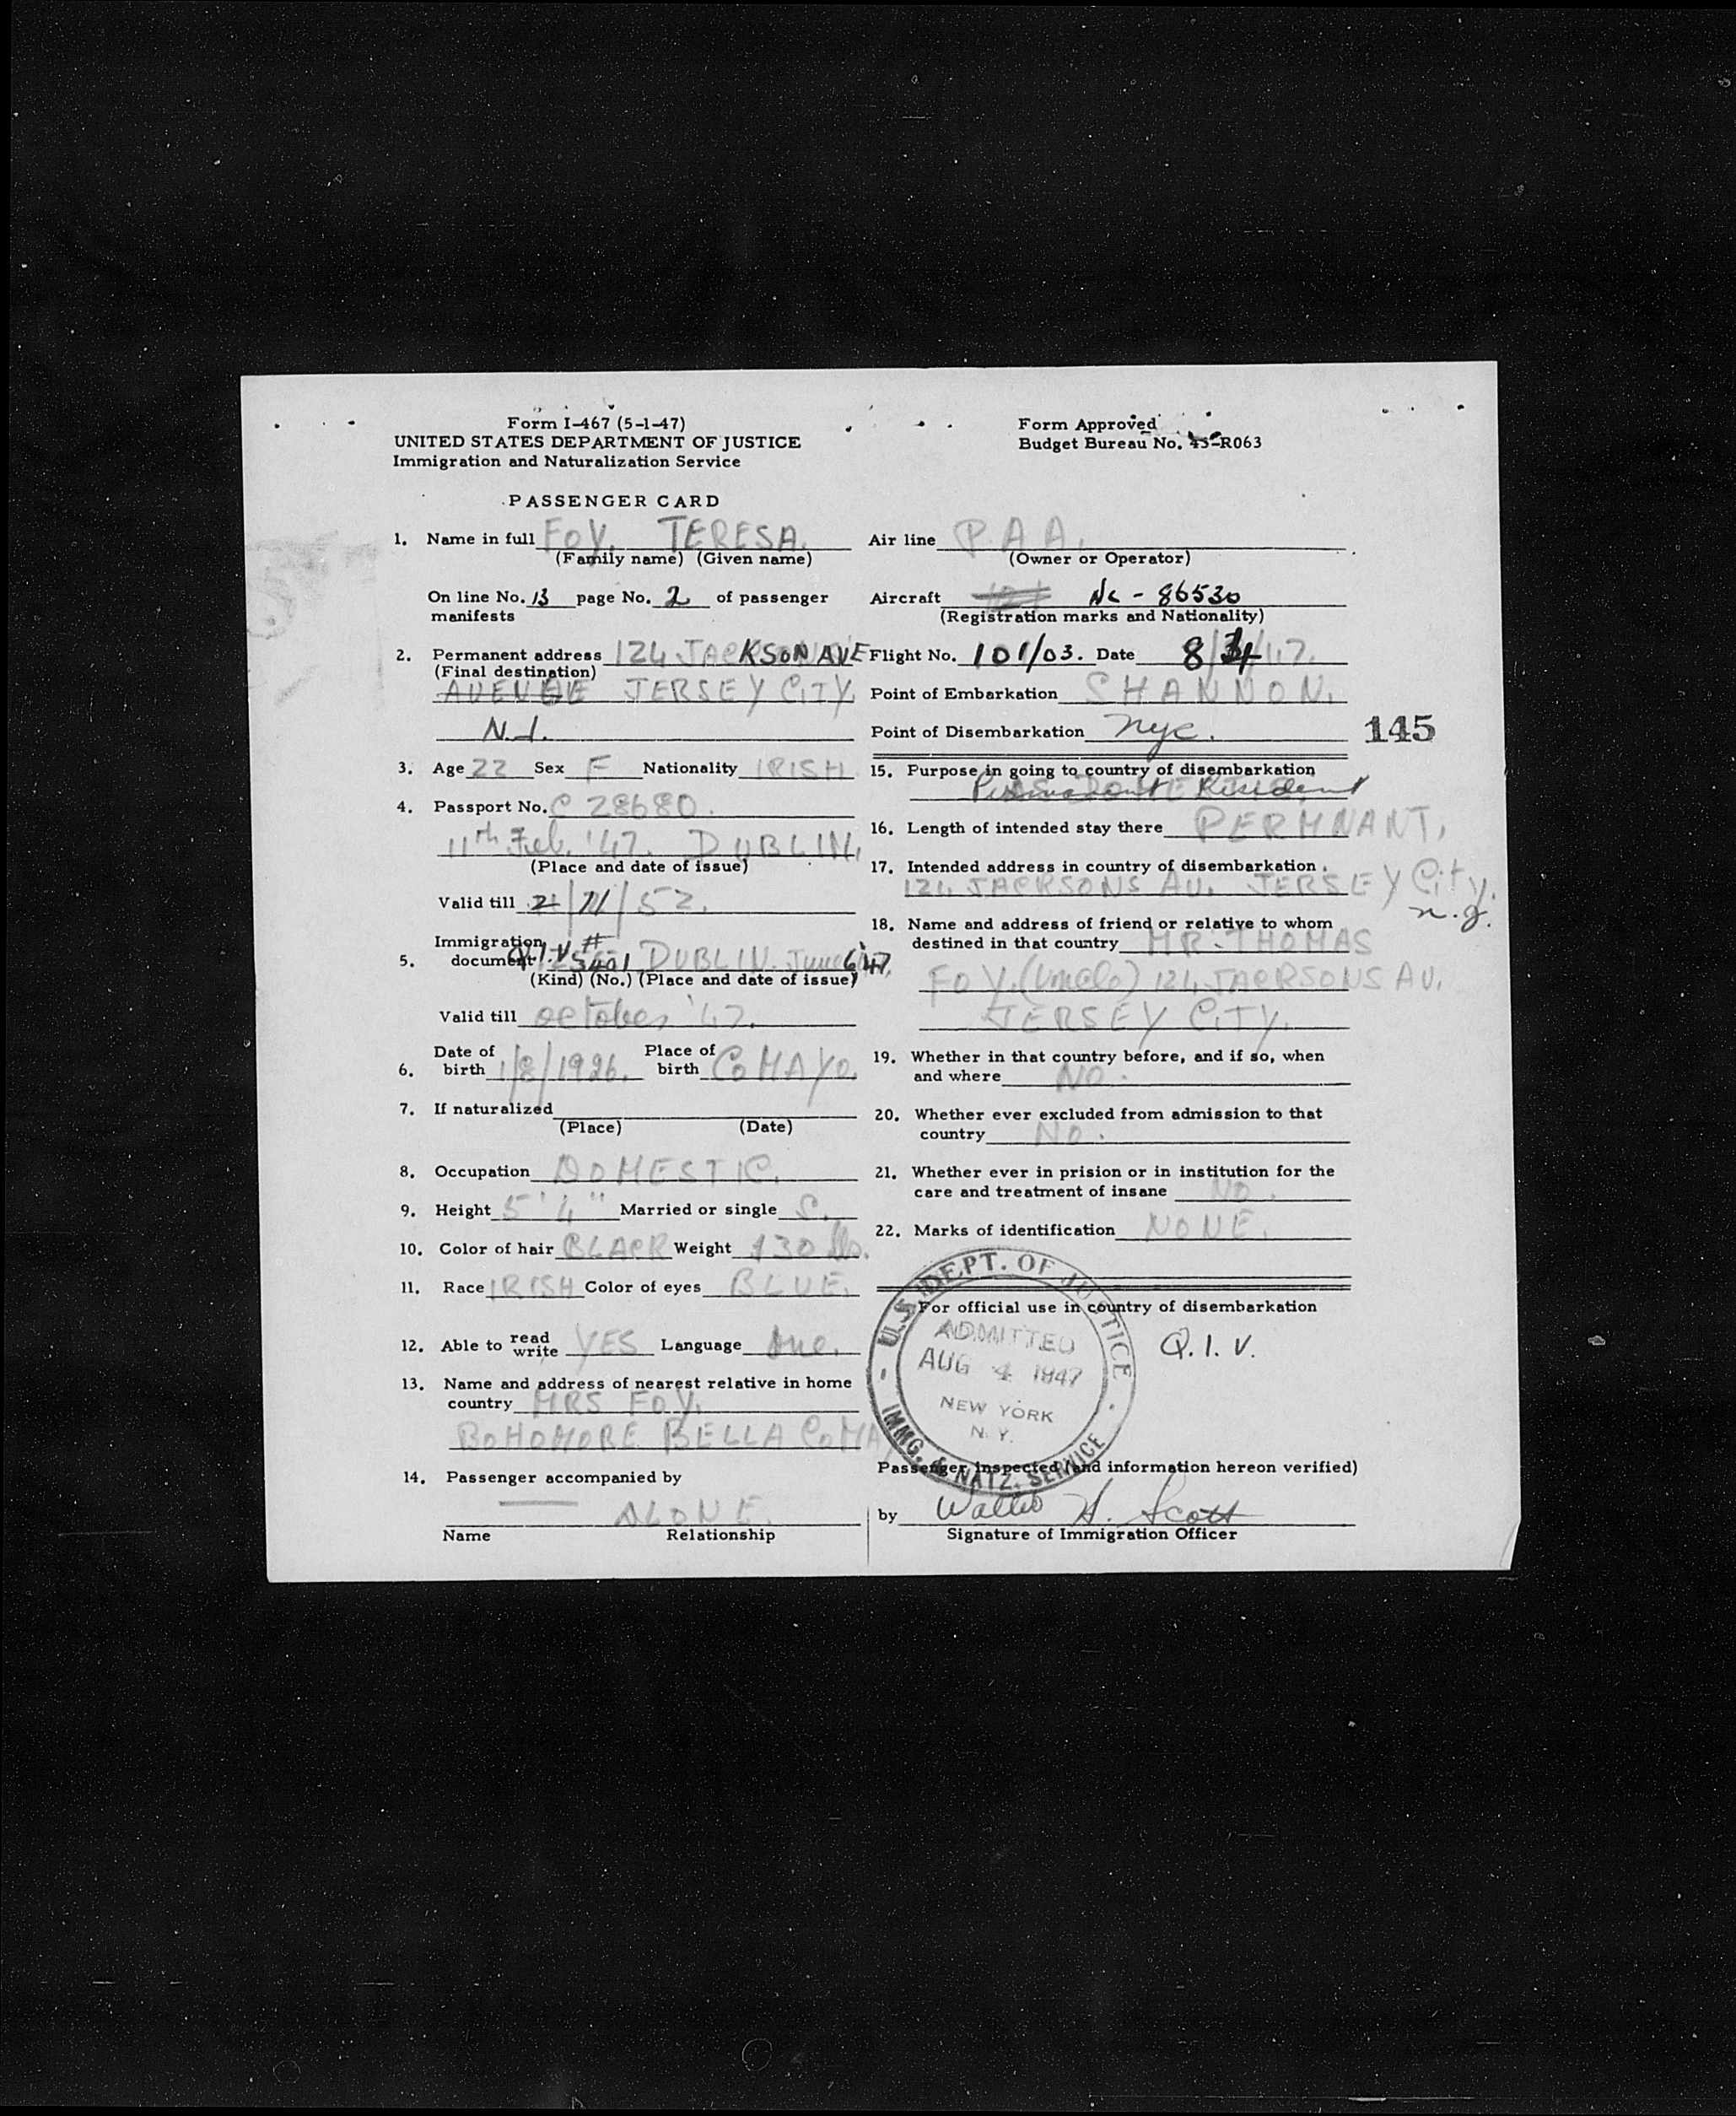 Form I-467 (5-1-47)
UNITED STATES DEPARTMENT OF JUSTICE
Immigration and Naturalization Service
Form Approved
Budget Bureau No. 43-R063
PASSENGER CARD
1. Name in full FOY, TERESA.
(Family name) (Given name)
On line No. 13 page No. 2 of passenger
manifests
2. Permanent address 124 JACKSON AVE
(Final destination)
AVENUE JERSEY CITY,
N.J.
3. Age 22 Sex F Nationality IRISH
4. Passport No. C 28680.
11th Feb. '47. DUBLIN,
(Place and date of issue)
Valid till 2/11/52.
Immigration
5. document Q.I.V # 5401 DUBLIN. June 6 '47
(Kind) (No.) (Place and date of issue)
Valid till October '47.
6. Date of birth 1/8/1926. Place of birth Co MAYO.
7. If naturalized
(Place) (Date)
8. Occupation DOMESTIC.
9. Height 5'4" Married or single S.
10. Color of hair BLACK Weight 130 lbs.
11. Race IRISH Color of eyes BLUE.
12. Able to read write YES Language One.
13. Name and address of nearest relative in home
country MRS FOY,
BOHOMORE BELLA Co MA
14. Passenger accompanied by
ALONE.
Name Relationship
Air line P.A.A.
(Owner or Operator)
Aircraft NC - 86530
(Registration marks and Nationality)
Flight No. 101/03. Date 8/4/47.
Point of Embarkation SHANNON.
Point of Disembarkation nyc.
145
15. Purpose in going to country of disembarkation
Permanent Resident
16. Length of intended stay there PERMNANT.
17. Intended address in country of disembarkation
124 JACKSONS AV. JERSEY City.
n.J.
18. Name and address of friend or relative to whom
destined in that country MR. THOMAS
FOY. (Uncle) 124 JACKSONS AV.
JERSEY CITY.
19. Whether in that country before, and if so, when
and where NO.
20. Whether ever excluded from admission to that
country NO.
21. Whether ever in prision or in institution for the
care and treatment of insane NO.
22. Marks of identification NONE.
For official use in country of disembarkation
Q.I.V.
U.S. DEPT. OF JUSTICE
ADMITTED
AUG 4 1947
NEW YORK
N.Y.
IMMG. & NATZ. SERVICE
Passenger inspected (and information hereon verified)
by Walter H. Scott
Signature of Immigration Officer